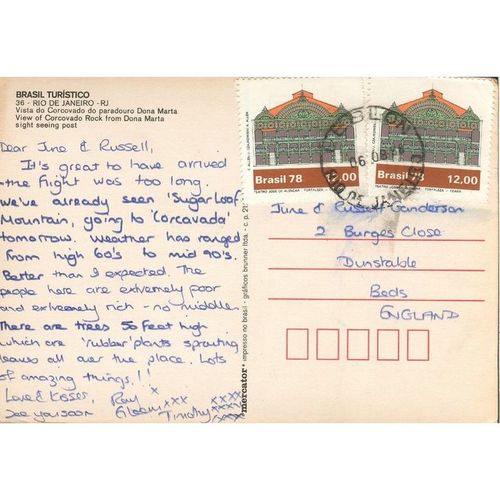 BRASIL TURÍSTICO
36 - RIO DE JANEIRO - RJ
Vista do Corcovado do paradouro Dona Marta
View of Corcovado Rock from Dona Marta
sight seeing post
Dear June & Russell,
It's great to have arrived
- the flight was too long.
we've already seen 'Sugar Loaf
Mountain, going to 'Corcavado'
tomorrow. Weather has ranged
from high 60's to mid 90's.
Better than I expected. The
people here are extremely poor
and extremely rich - no middle.
There are trees 50 feet high
which are 'rubber' plants sprouting
leaves all over the place. Lots
of amazing things!!
Love & Kisses, Ray xxx xxx
See you soon Eileen Timothy xxxx
mercator® impresso no brasil - gráficos brunner ltda. - c. p.
Brasil 78 12,00
TEATRO JOSÉ DE ALENCAR FORTALEZA - CEARÁ
Brasil 78 12,00
TEATRO JOSÉ DE ALENCAR FORTALEZA - CEARÁ
RIO DE JANEIRO
June & Russell Ganderson
2 Burges Close
Dunstable
Beds
ENGLAND